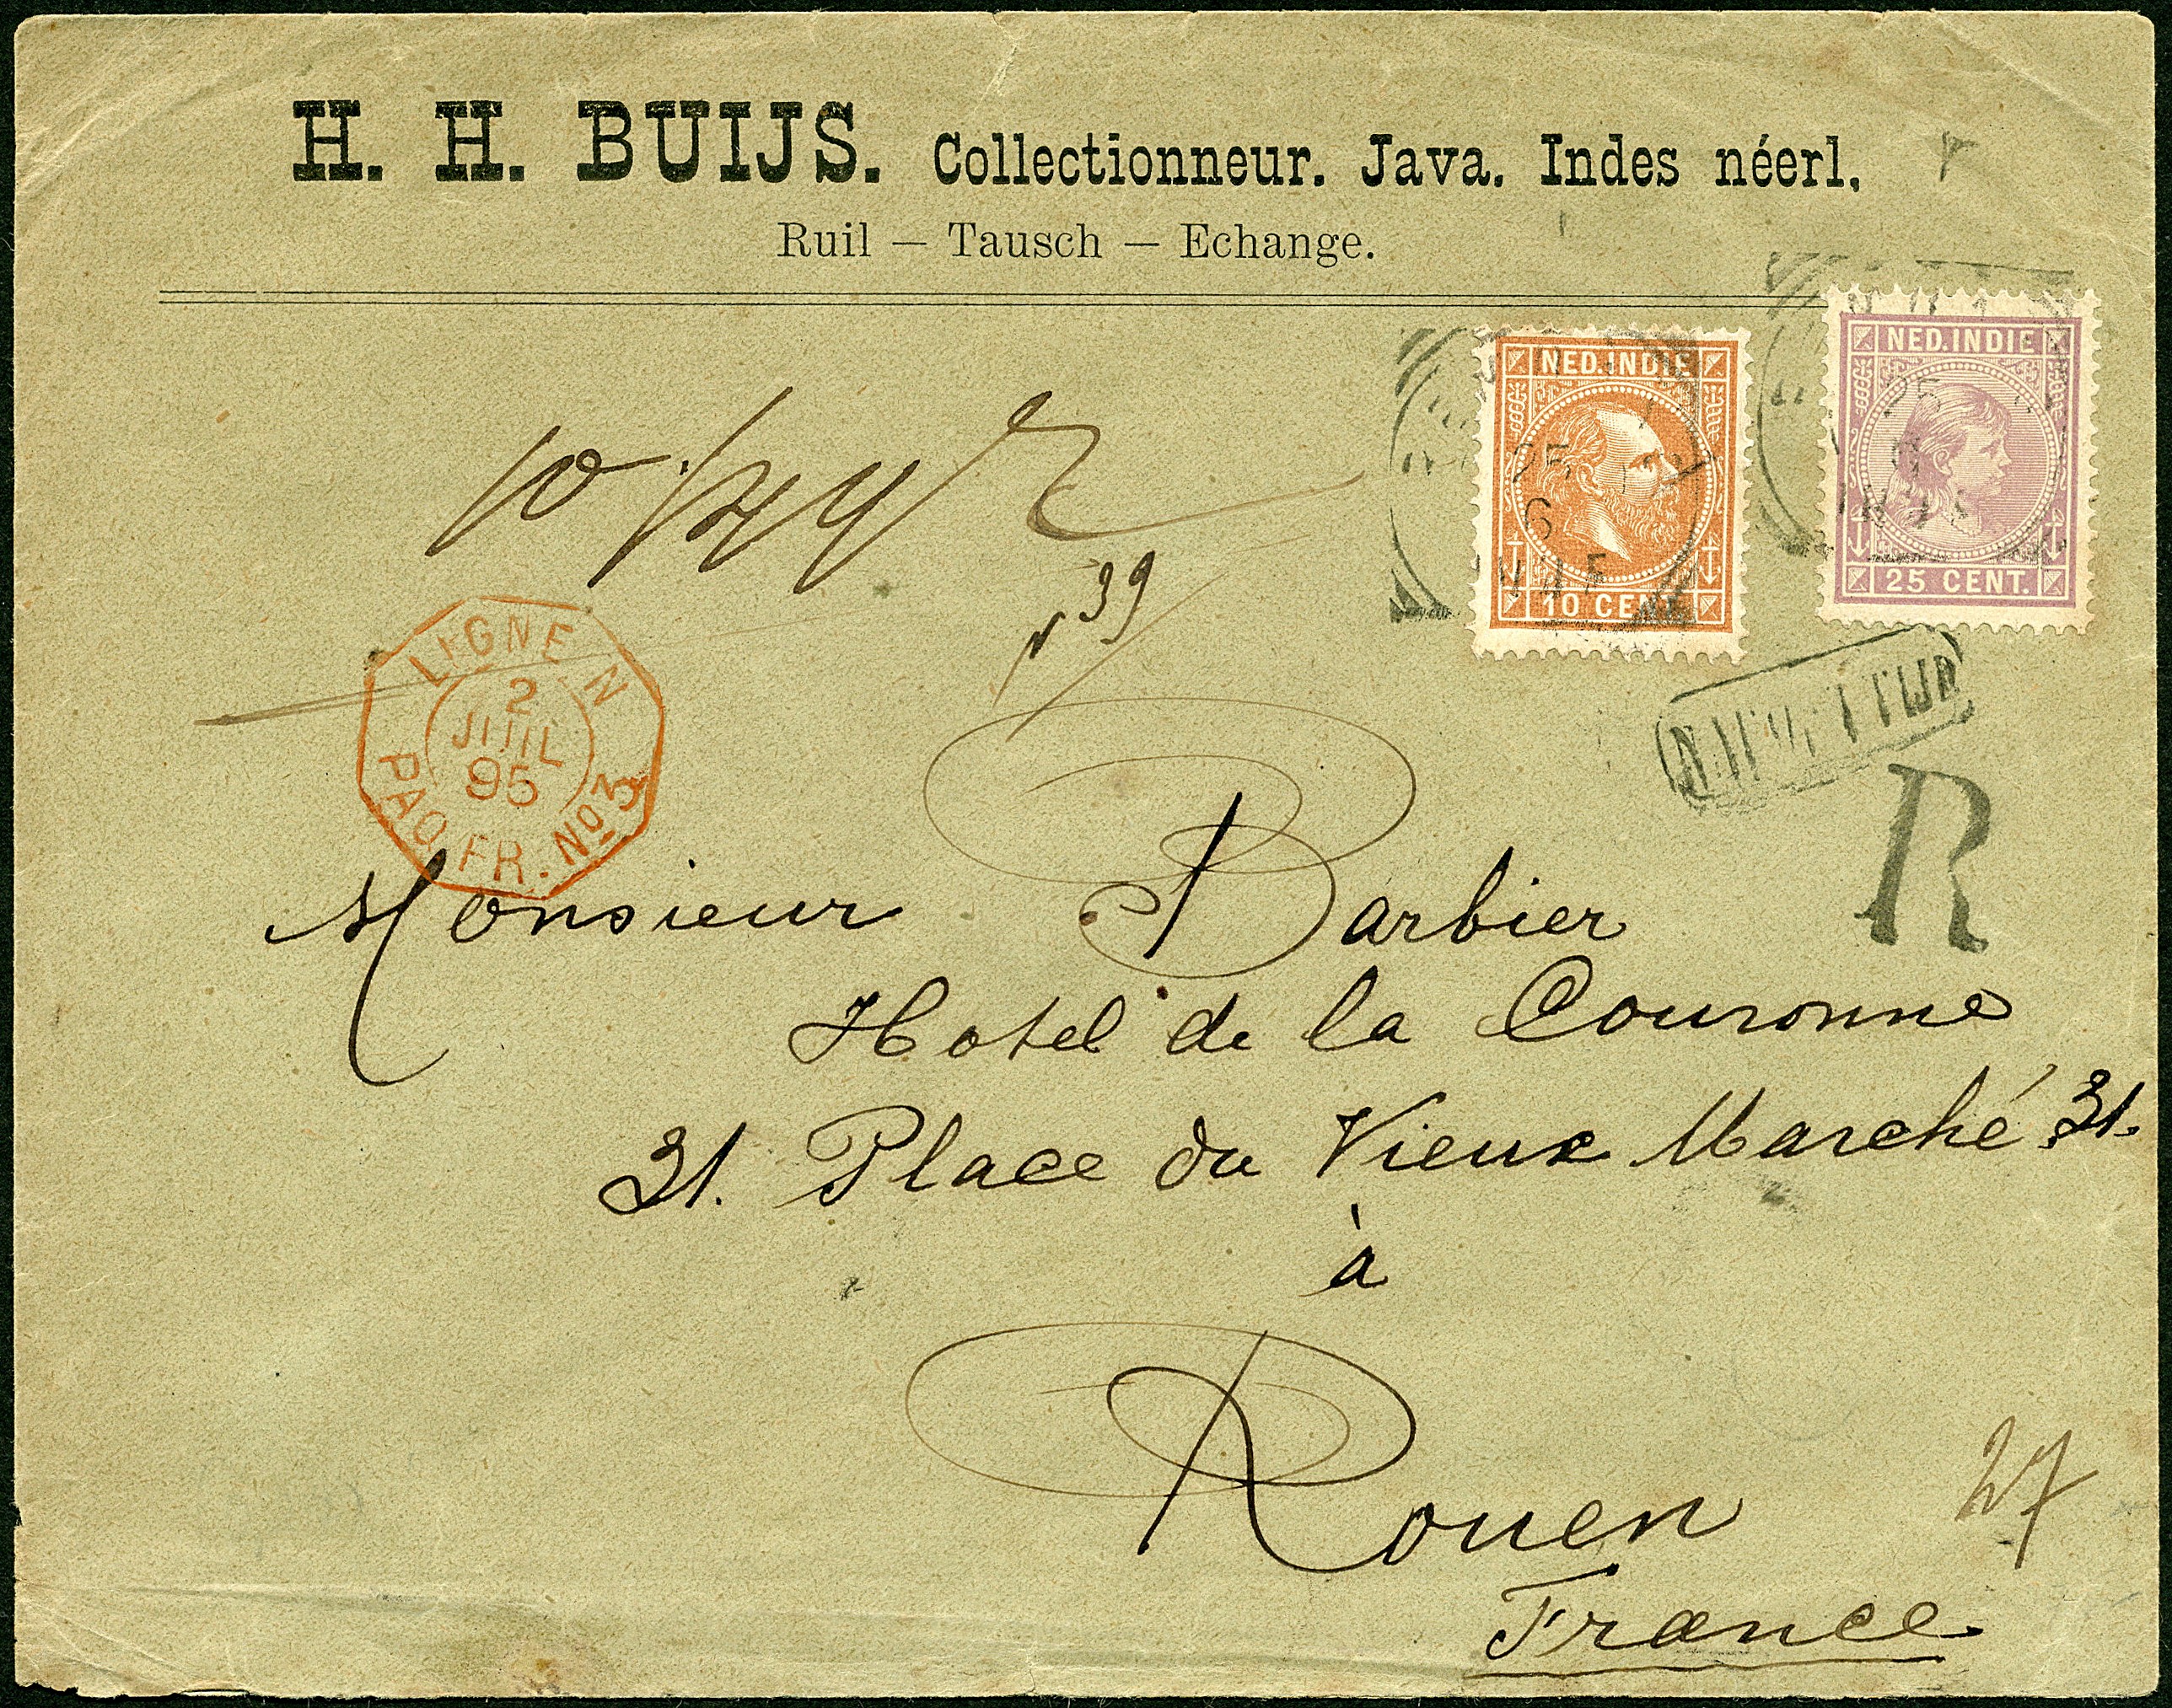 H. H. BUIJS. Collectionneur. Java. Indes néerl.
Ruil — Tausch — Echange.
NED. INDIE
10 CENT.
NED. INDIE
25 CENT.
25
6
25
6
39
LIGNE N
2
JUIL
95
PAQ. FR. Nº 3
R
Monsieur Barbier
Hotel de la Couronne
31. Place du Vieux Marché 31.
à
Rouen
France
27